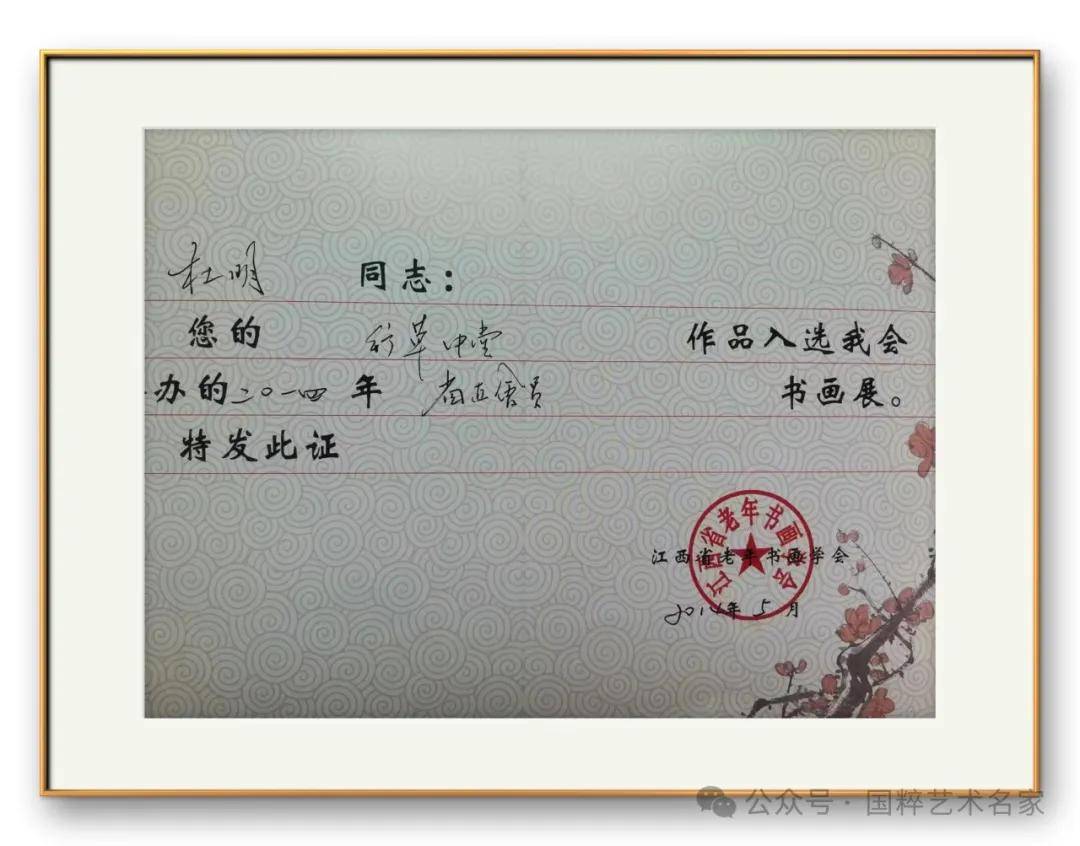 杜明 同志：
您的 行草中堂 作品入选我会
办的二〇一四年 省直会员 书画展。
特发此证
江西省老年书画学会
江西省老年书画学会
2014年5月
公众号·国粹艺术名家